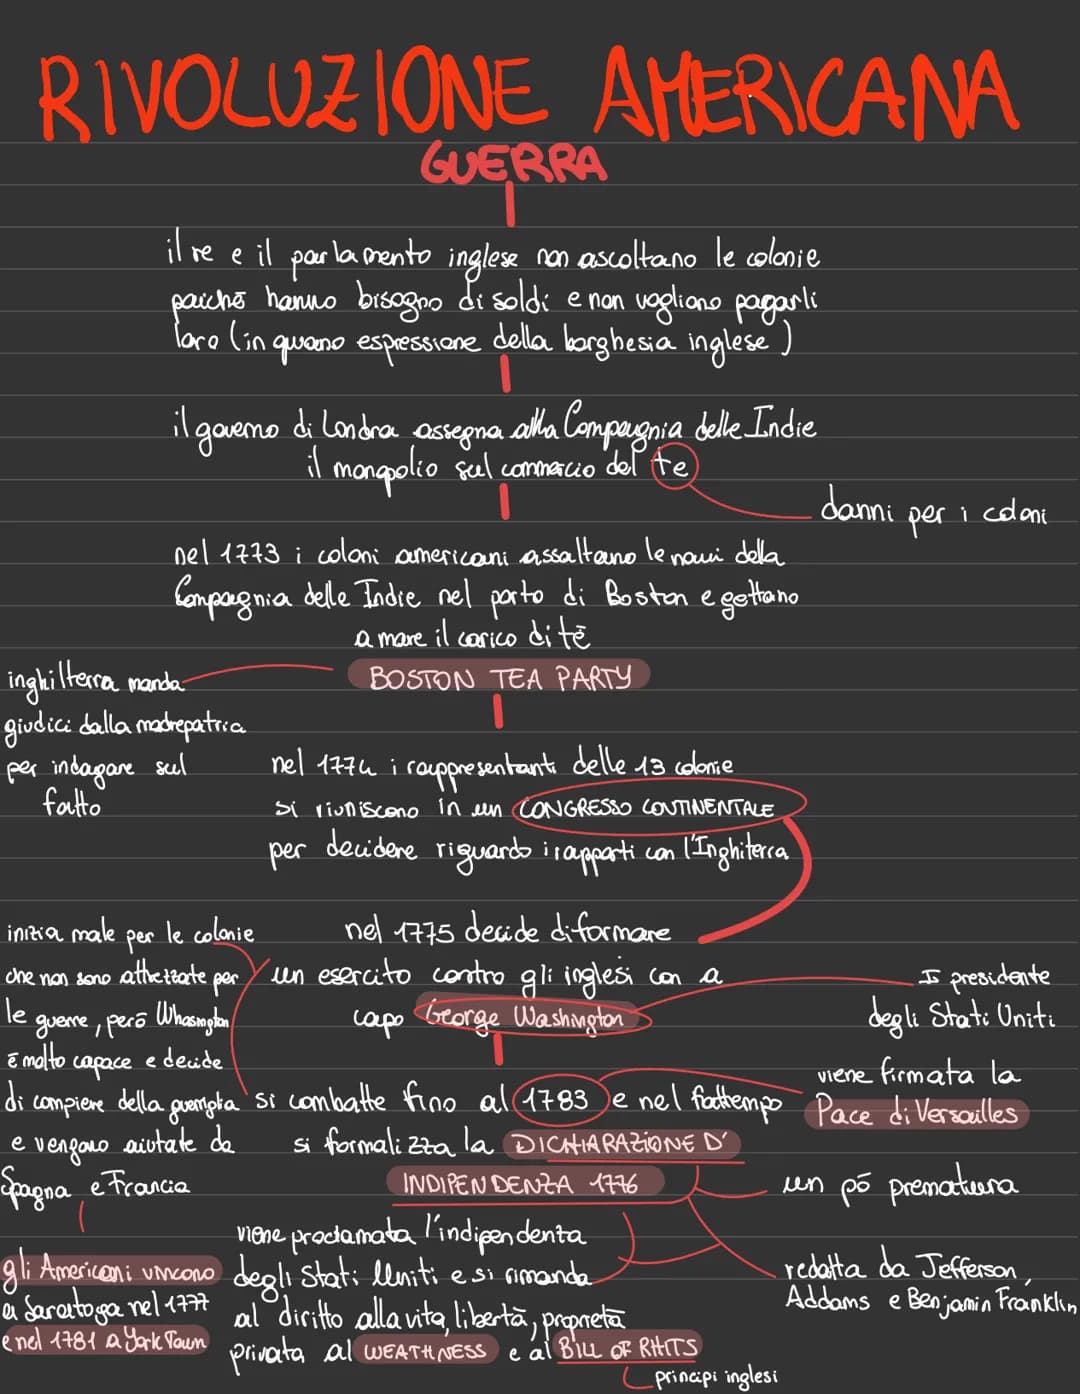 RIVOLUZIONE AMERICANA
GUERRA
il re e il parlamento inglese non ascoltano le colonie
poichè hanno bisogno di soldi e non vogliono pagarli
loro (in quano espressione della borghesia inglese)
il governo di Londra assegna alla Compagnia delle Indie
il monopolio sul commercio del te
danni per i coloni
nel 1773 i coloni americani assaltano le navi della
Compagnia delle Indie nel porto di Boston e gettano
a mare il carico di tè
BOSTON TEA PARTY
inghilterra manda
giudici dalla madrepatria
per indagare sul
fatto
nel 1774 i rappresentanti delle 13 colonie
si riuniscono in un CONGRESSO CONTINENTALE
per decidere riguardo i rapporti con l'Inghiterra
nel 1775 decide di formare
un esercito contro gli inglesi con a
capo George Washington
I presidente
degli Stati Uniti
inizia male per le colonie
che non sono attrezzate per
le guerre, però Whasington
è molto capace e decide
di compiere della guerriglia
e vengono aiutate da
Spagna e Francia
si combatte fino al 1783 e nel frattempo
si formalizza la DICHIARAZIONE D'
INDIPENDENZA 1776
viene firmata la
Pace di Versailles
un pò prematura
redatta da Jefferson,
Addams e Benjamin Franklin
viene proclamata l'indipendenza
degli Stati Uniti e si rimanda
al diritto alla vita, libertà, proprietà
privata al WEATHNESS e al BILL OF RHITS
principi inglesi
gli Americani vincono
a Saratoga nel 1777
e nel 1781 a York Town